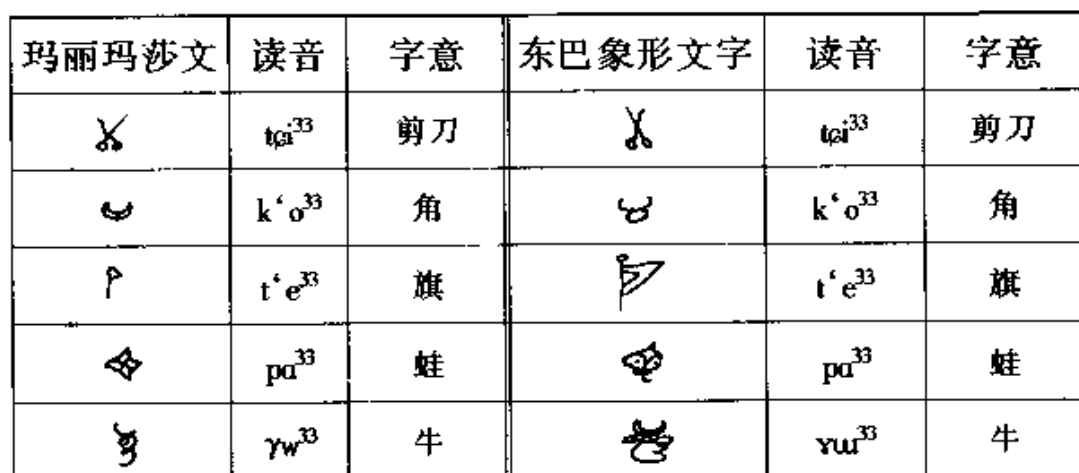 玛丽玛莎文 读音 字意 东巴象形文字 读音 字意
tɕi³³ 剪刀 tɕi³³ 剪刀
k‘o³³ 角 k‘o³³ 角
t‘e³³ 旗 t‘e³³ 旗
pɑ³³ 蛙 pɑ³³ 蛙
γw³³ 牛 ɤɯ³³ 牛